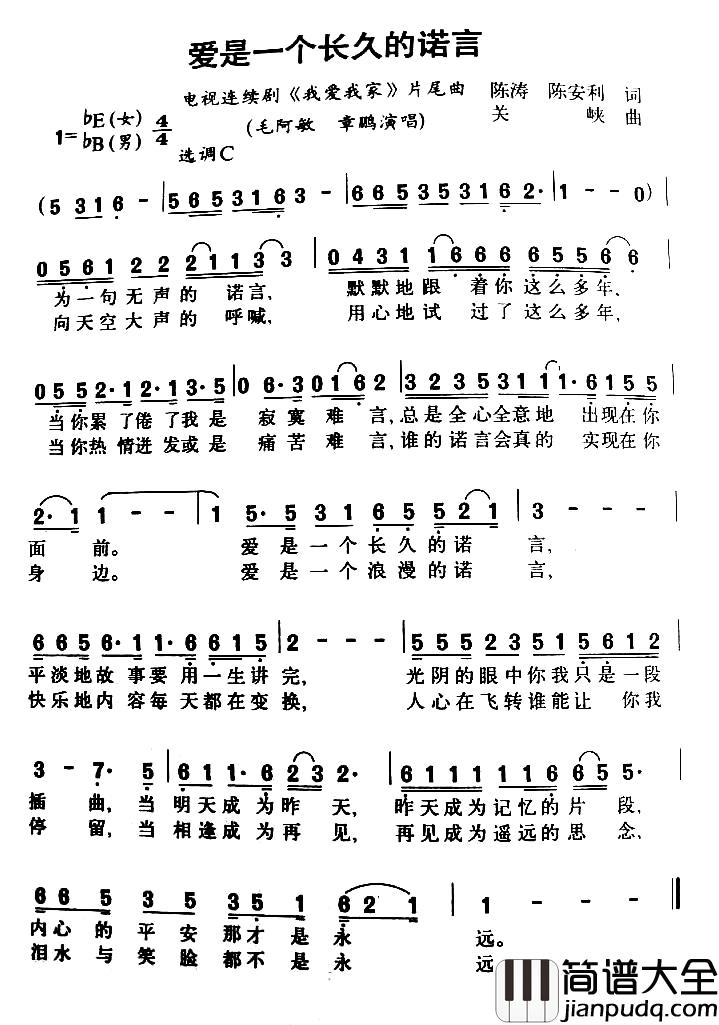 爱是一个长久的诺言
电视连续剧《我爱我家》片尾曲 陈涛 陈安利 词
1= ♭E(女) ♭B(男) 4/4 (毛阿敏 章鹏演唱) 关 峡 曲
选调C
(5 3 1 6 - | 5 6 5 3 1 6 3 - | 6 6 5 3 5 3 1 6 2· | 1 - - 0) |
0 5 6 1 2 2 2 1 1 3 3 | 0 4 3 1 1 6 6 6 6 5 5 6 6 |
为一句无声的 诺言, 默默地跟 着你这么多年,
向天空大声的 呼喊, 用心地试 过了这么多年,
0 5 5 2· 1 2· 1 3· 5 | 0 6· 3 0 1 6 2 | 3 2 3 5 3 1 1 1· 6 1 5 5 |
当你累了倦了我是 寂寞 难 言,总是全心全意地 出现在你
当你热情迸发或是 痛苦 难 言,谁的诺言会真的 实现在你
2· 1 1 - - | 1 5· 5 3 1 1 6 5 5 2 1 | 3 - - - |
面 前。 爱是一个长久的诺 言,
身 边。 爱是一个浪漫的诺 言,
6 6 5 6· 1 1· 6 6 1 5 | 2 - - - | 5 5 5 2 3 5 1 5 6 1 2 |
平淡地故事要 用一生讲 完, 光阴的眼中你我只是一段
快乐地内容每 天都在变 换, 人心在飞转谁能让 你我
3 - 7· 5 | 6 1 1· 6 2 3 2· | 6 1 1 1 1· 1 6 6 5 5· |
插 曲, 当 明天成为昨 天, 昨天成为记忆的片 段,
停 留, 当 相逢成为再 见, 再见成为遥远的思 念,
6 6 5 3 5 3 5 1 6 2 1 | 1 - - - ‖
内心的平安那才是永 远。
泪水与笑脸都不是永 远
简谱大全
jianpudq.com